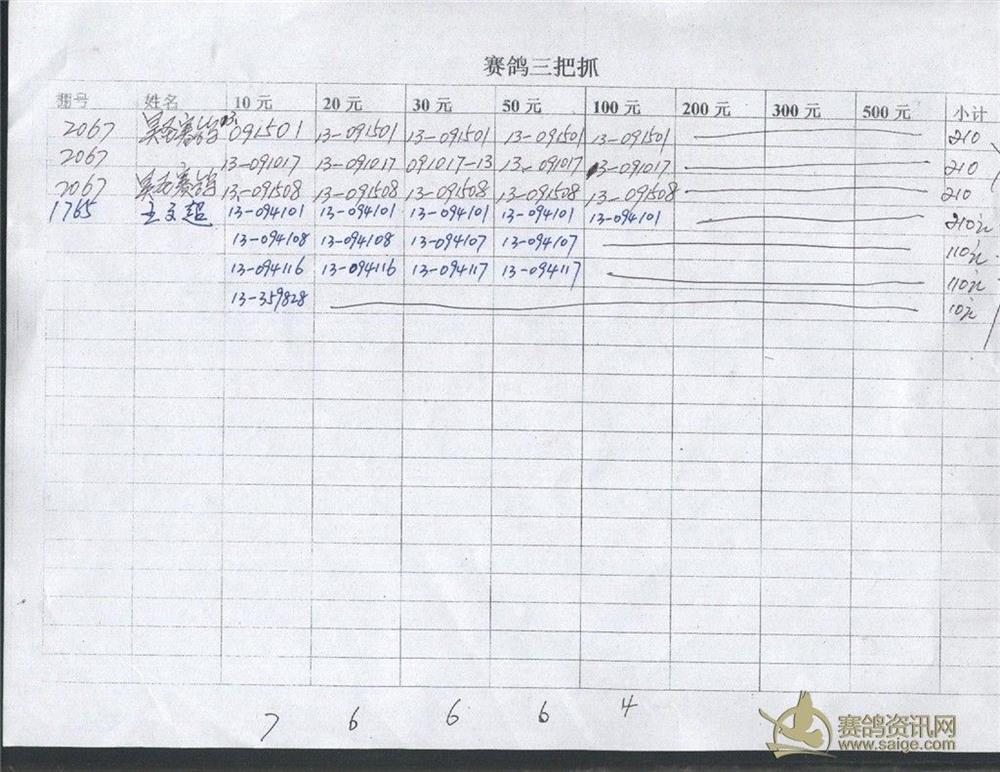 赛鸽三把抓
棚号 姓名 10元 20元 30元 50元 100元 200元 300元 500元 小计
2067 赛鸽 13-091501 13-091501 13-091501 13-091501 13-091501 210
2067 13-091017 13-091017 091017-13 13-091017 13-091017 210
2067 赛鸽 13-091508 13-091508 13-091508 13-091508 13-091508 210
1765 王文超 13-094101 13-094101 13-094101 13-094101 13-094101 210元
13-094108 13-094108 13-094107 13-094107 110元
13-094116 13-094116 13-094117 13-094117 110元
13-359828 10元
7 6 6 6 4
赛鸽资讯网
www.saige.com